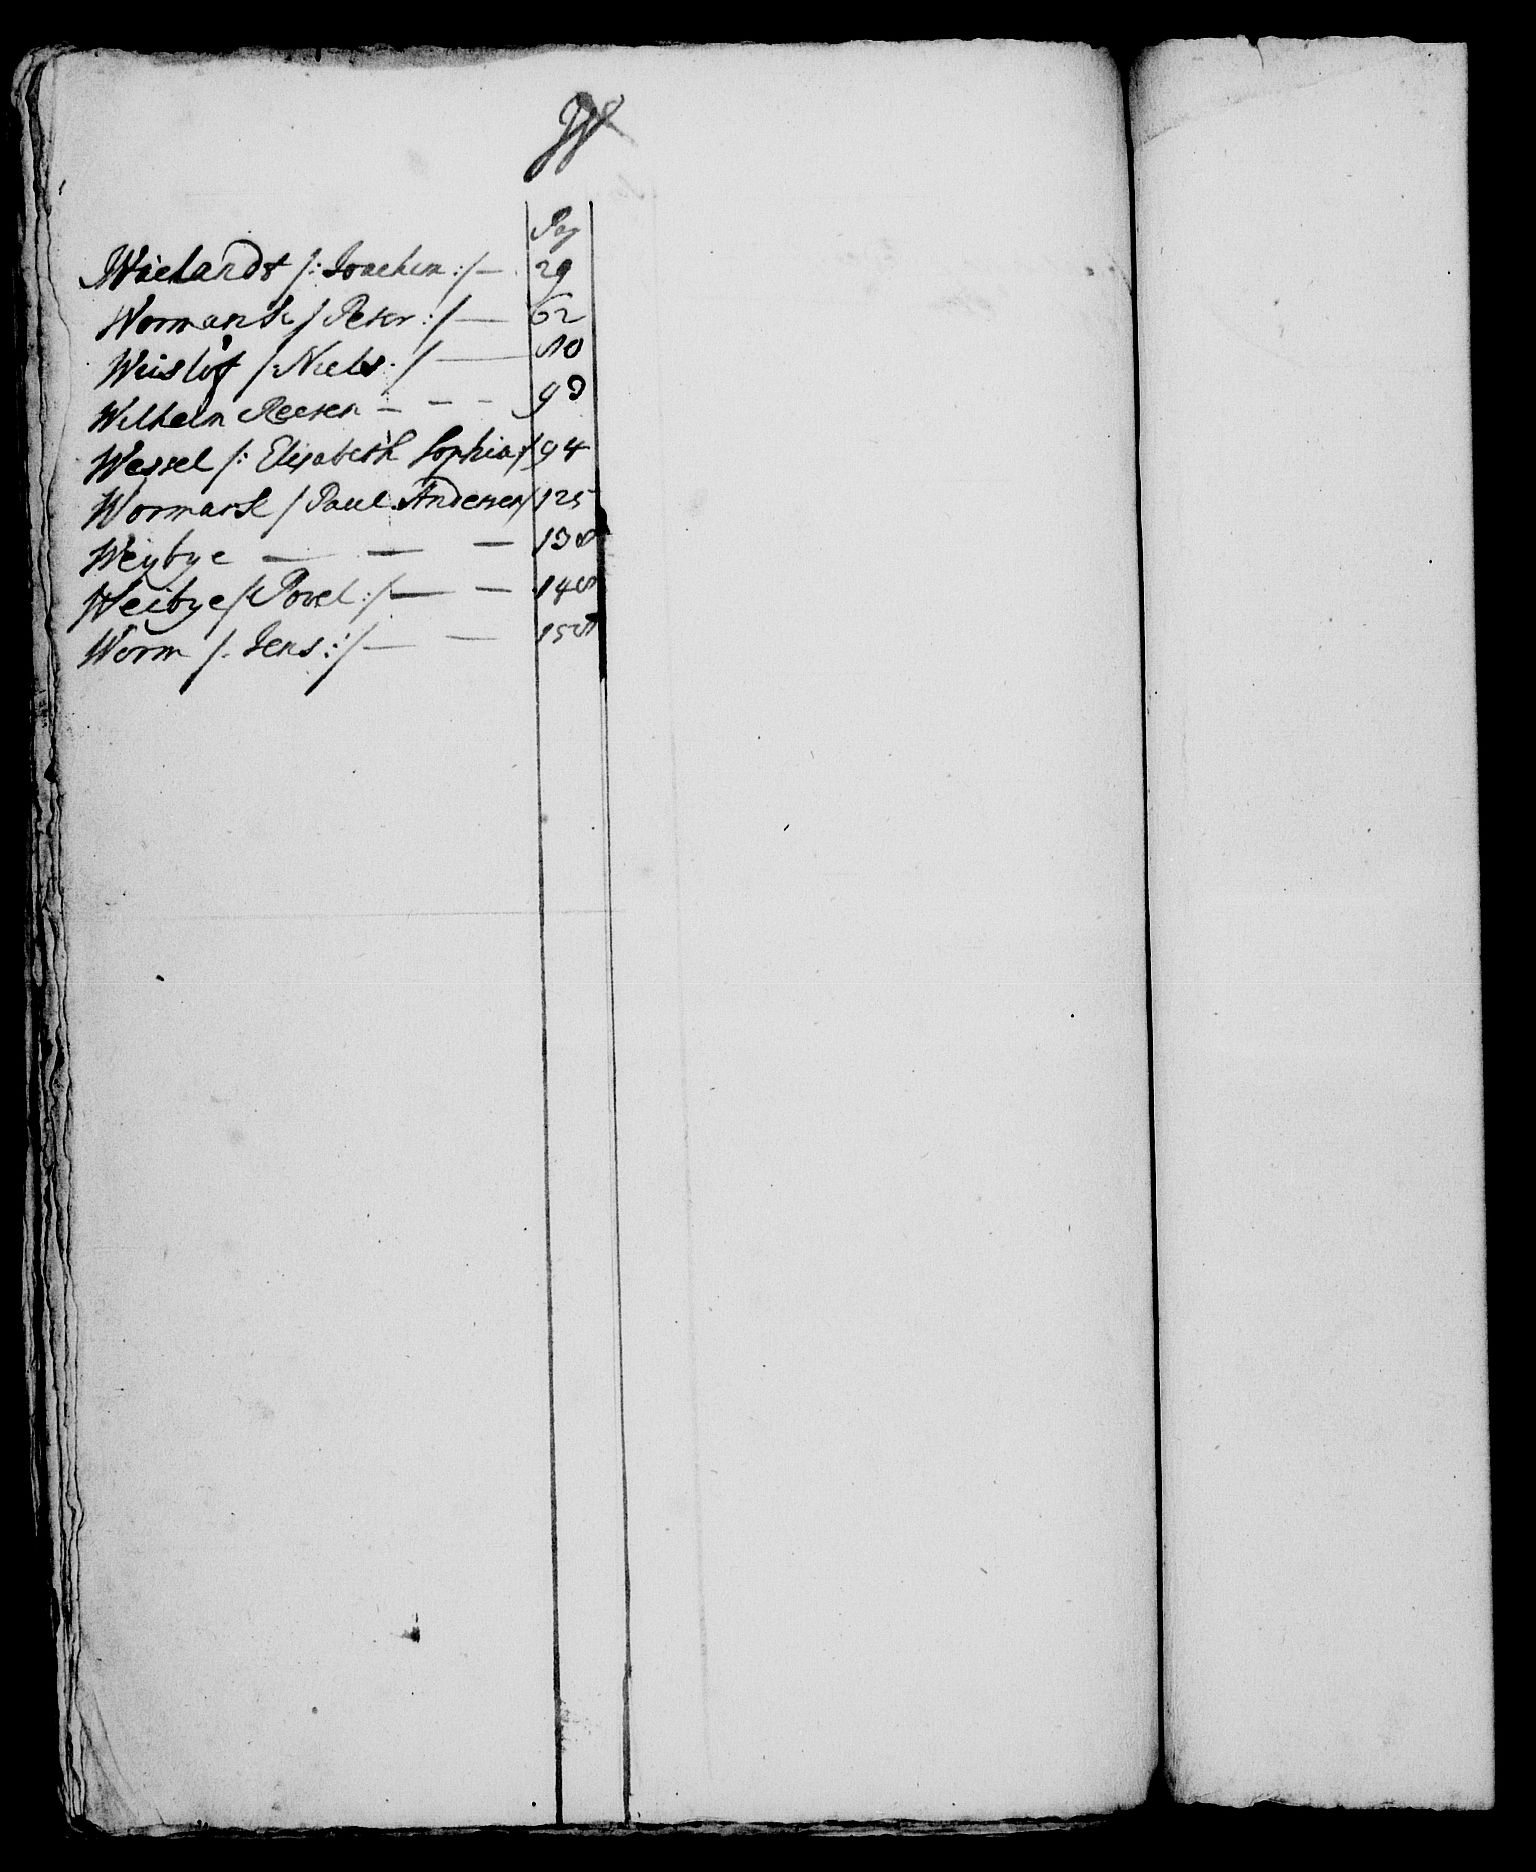 W
Pag
Wielandt /: Joachim :/ — 29
Wormansk / Peter :/ — 62
Wiislöf /: Niels :/ — 80
Wilhelm Reesen — — — 93
Wessel /: Elisabeth Sophia :/ 94
Wormansk / Paul Andersen / 125
Weybye — — — 138
Weibye /: Povel :/ — — 148
Worm /: Jens :/ — — 158